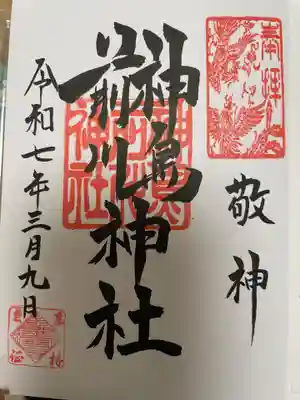 奉拝
敬神
神鳥
前川
神社
令和七年三月九日